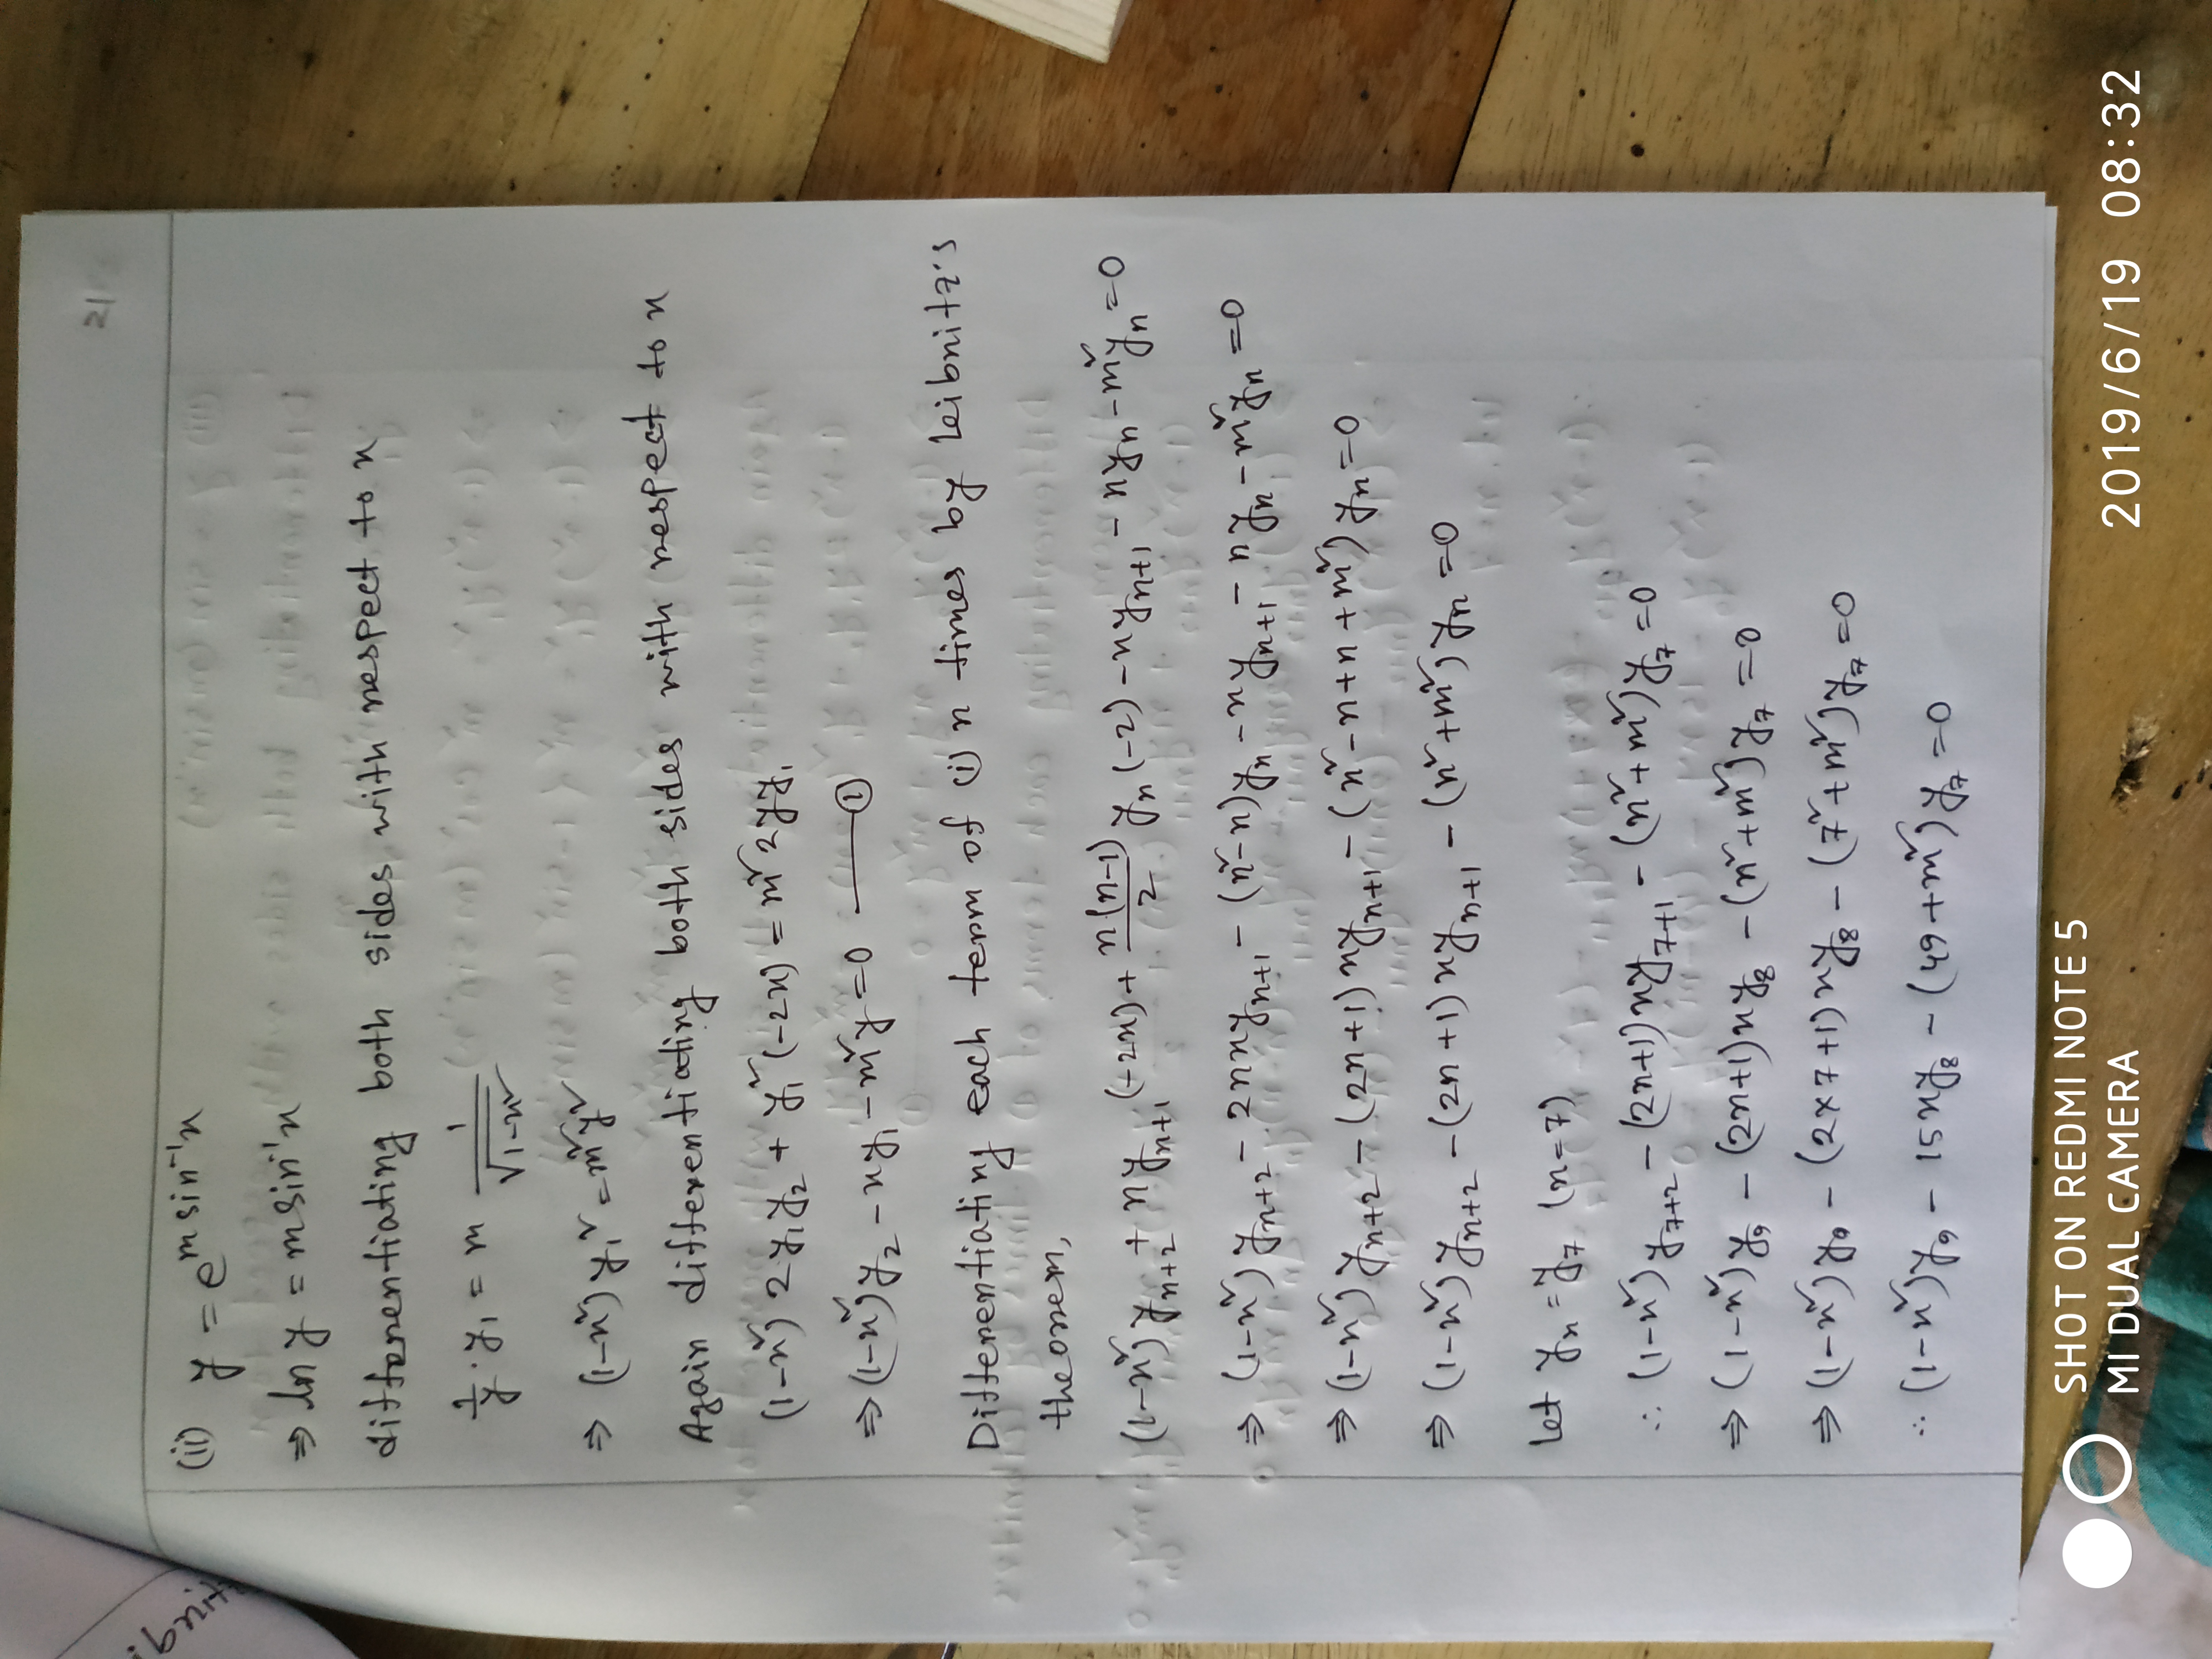 21
ibnit
(ii) y = e^{m sin⁻¹x}
⇒ ln y = m sin⁻¹x
differentiating both sides with respect to x
1/y · y₁ = m 1/√(1-x²)
⇒ (1-x²) y₁² = m²y²
Again differentiating both sides with respect to x
(1-x²) 2y₁y₂ + y₁² (-2x) = m² 2yy₁
⇒ (1-x²) y₂ - xy₁ - m²y = 0 —— ①
Differentiating each term of (i) n times by Leibnitz's
theorem,
(1-x²) y_{n+2} + ny_{n+1} (-2x) + n(n-1)/2 y_n (-2) - xy_{n+1} - ny_n - m²y_n = 0
⇒ (1-x²) y_{n+2} - 2nxy_{n+1} - (n²-n)y_n - xy_{n+1} - ny_n - m²y_n = 0
⇒ (1-x²) y_{n+2} - (2n+1) xy_{n+1} - (n²-n+n+m²) y_n = 0
⇒ (1-x²) y_{n+2} - (2n+1) xy_{n+1} - (n²+m²) y_n = 0
Let y_n = y₇ (n=7)
∴ (1-x²) y_{7+2} - (2n+1) xy_{7+1} - (n²+m²) y₇ = 0
⇒ (1-x²) y₉ - (2n+1) xy₈ - (n²+m²) y₇ = 0
⇒ (1-x²) y₉ - (2×7+1) xy₈ - (7²+m²) y₇ = 0
∴ (1-x²) y₉ - 15xy₈ - (49+m²) y₇ = 0
SHOT ON REDMI NOTE 5
MI DUAL CAMERA
2019/6/19 08:32